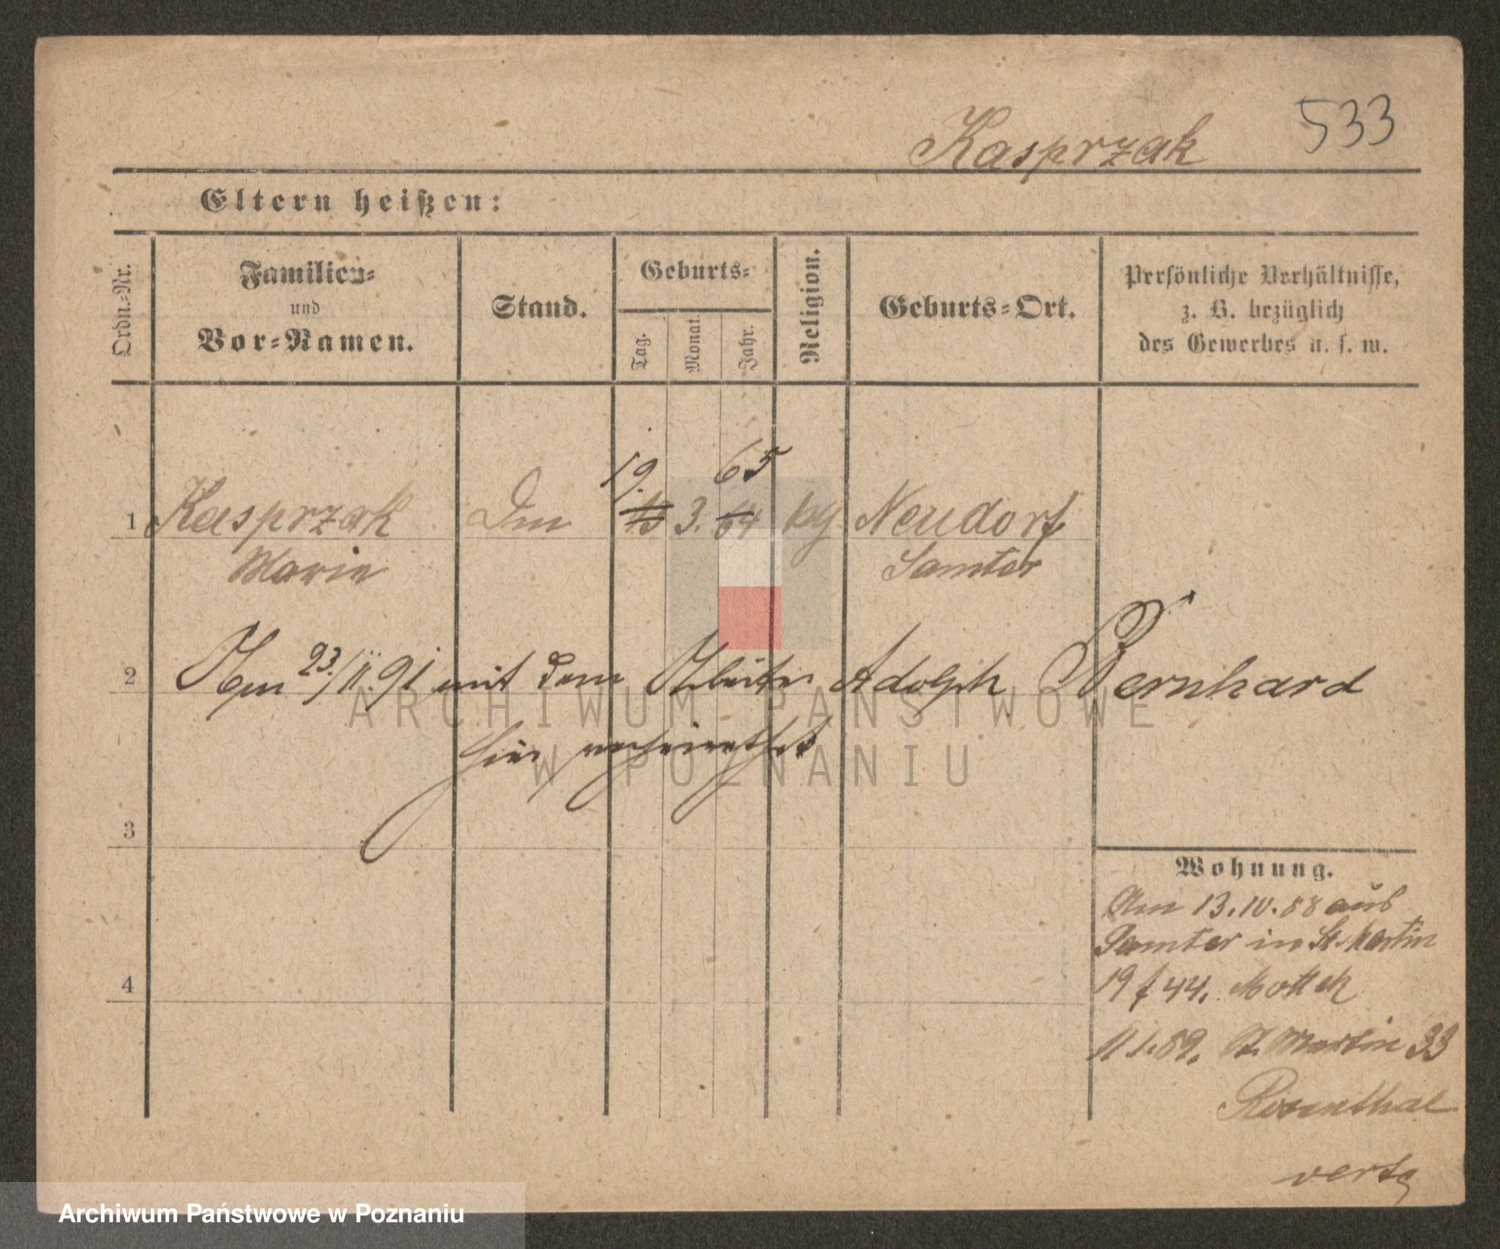 Kasprzak 533
Eltern heißen:
Ordn.-Nr.
Familien-
und
Vor-Namen.
Stand.
Geburts-
Tag.
Monat.
Jahr.
Religion.
Geburts-Ort.
Persönliche Verhältnisse,
z. B. bezüglich
des Gewerbes u. s. w.
19. 65
1 Kasprzak 3. 64 Neudorf
Marie Samter
2 Am 23./11.91 mit dem Adolph Bernhard
hier verheirathet
3
Wohnung.
Am 13.10.88 aus
Samter in St. Martin
19 f 44. Mottek
4
11.1.89. St. Martin 33
Rosenthal
vertg
ARCHIWUM PAŃSTWOWE
W POZNANIU
Archiwum Państwowe w Poznaniu